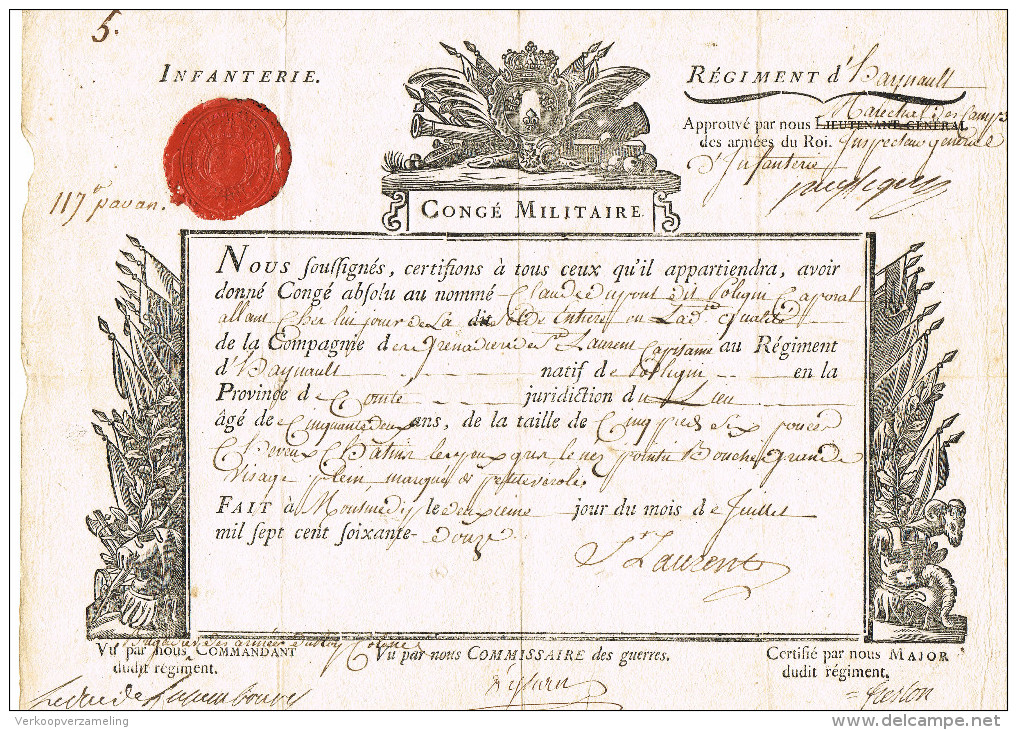 5.
INFANTERIE.
RÉGIMENT d'haynault
Marechal des Camps
Approuvé par nous LIEUTENANT GÉNÉRAL
des armées du Roi. Inspecteur général
d'Infanterie
117e pavan.
CONGÉ MILITAIRE.
NOUS souſſignés, certifions à tous ceux qu'il appartiendra, avoir
donné Congé abſolu au nommé Claude dupont dit Poligni Caporal
allant Cher lui jour de la dite Solde Entiere en Ladte qualité
de la Compagnie de Grenadiers de St Laurent Capitaine au Régiment
d'haynault natif de Poligni en la
Province de Comté juridiction du Lieu
âgé de Cinquante deux ans, de la taille de Cinq pieds six pouces
Cheveux Chatins les yeux gris le nez pointu Bouche grande
Visage plein marqué de petite verole.
FAIT à Montmedy le deuxieme jour du mois de Juillet
mil ſept cent ſoixante-douze
St Laurent
Vu par nous COMMANDANT
dudit régiment.
Vu par nous COMMISSAIRE des guerres.
Certifié par nous MAJOR
dudit régiment.
Verkoopverzameling
delcampe.net